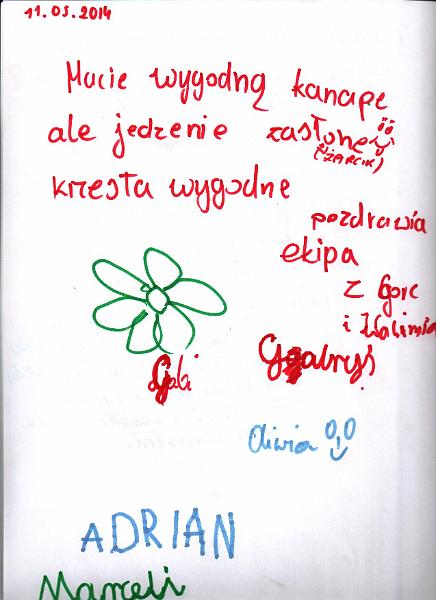 11.05.2014
Macie wygodną kanapę
ale jedzenie zasłonę
(ŻARCIK)
krzesła wygodne
pozdrawia
ekipa
z Gorc
i Walimia
Gabi
Gabryś
Oliwia
ADRIAN
Marceli